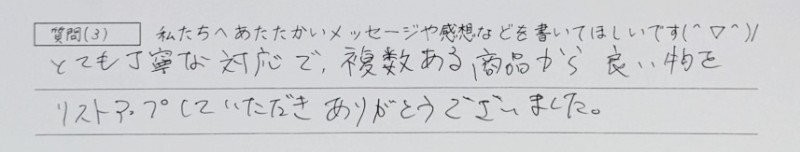 質問(3) 私たちへあたたかいメッセージや感想などを書いてほしいです(^▽^)/
とても丁寧な対応で、複数ある商品から良い物を
リストアップしていただきありがとうございました。